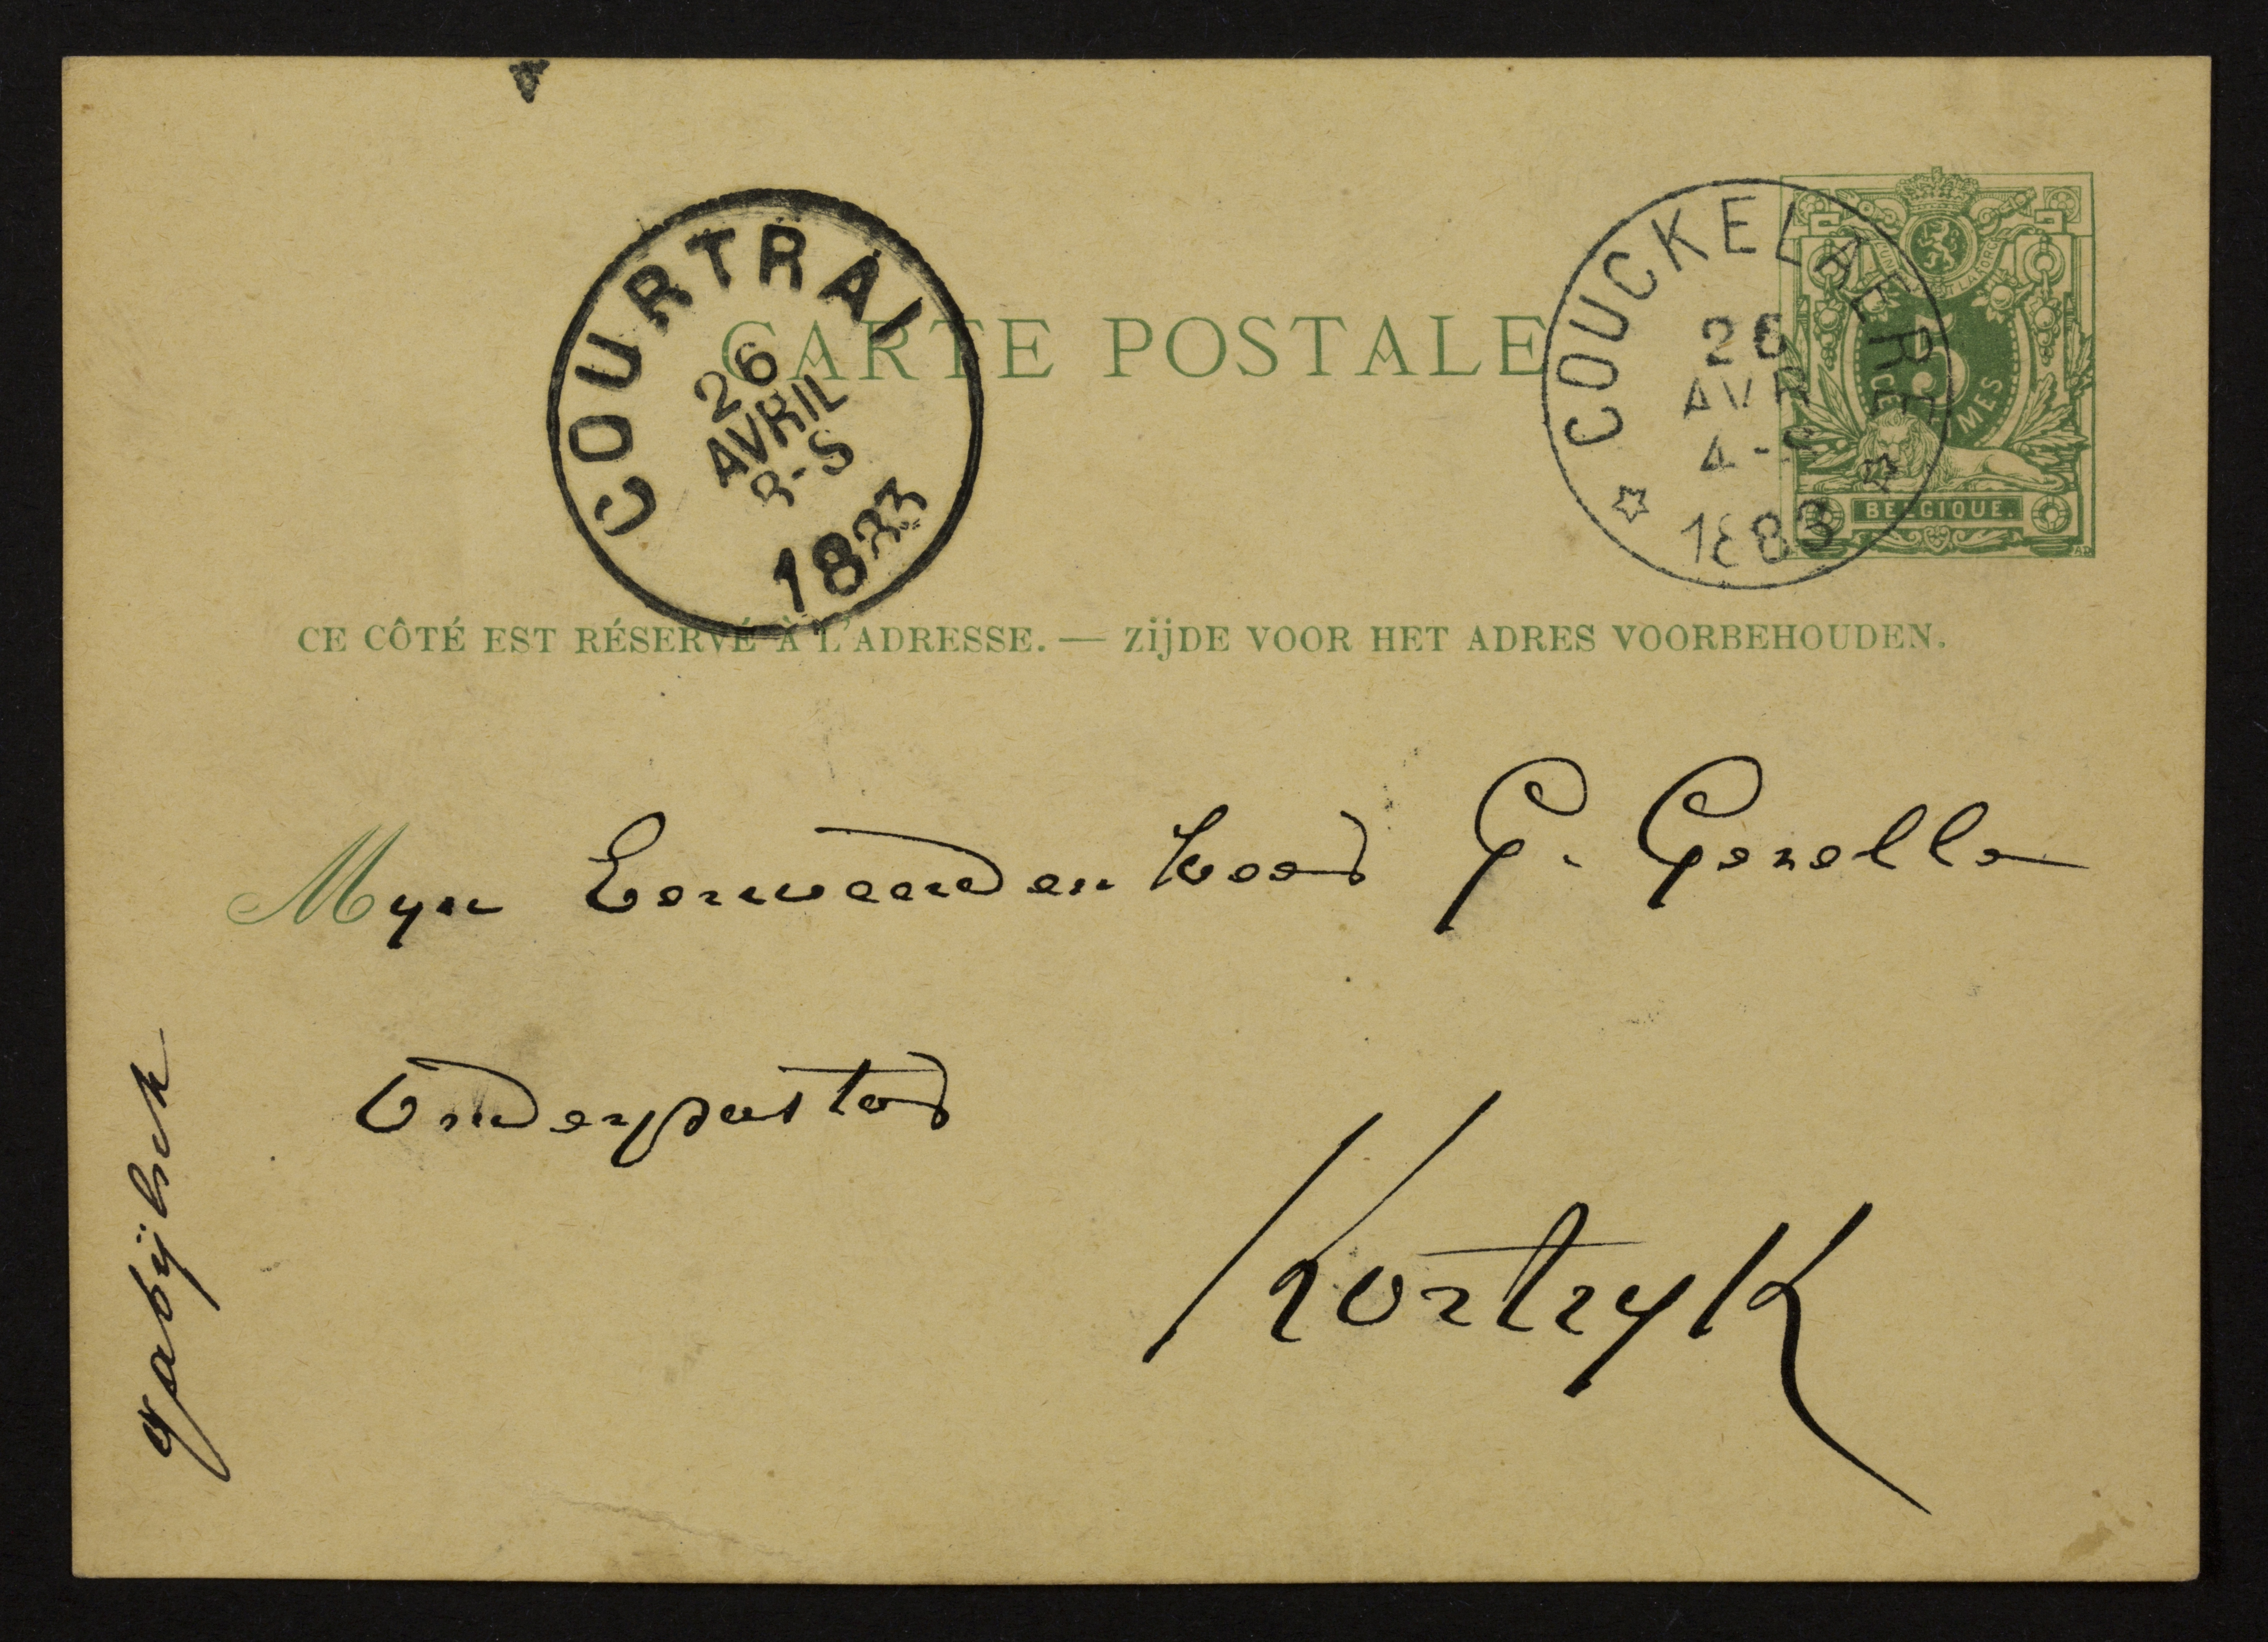 COURTRAI
26
AVRIL
8-S
1883
CARTE POSTALE
COUCKELAERE
26
AVR
4-S
1883
UNION FORCE
5
CES
BELGIQUE.
CE CÔTÉ EST RÉSERVÉ À L'ADRESSE. — ZijDE VOOR HET ADRES VOORBEHOUDEN.
Myn Eerweerden heer G. Gezelle
Onderpastor
Kortryk